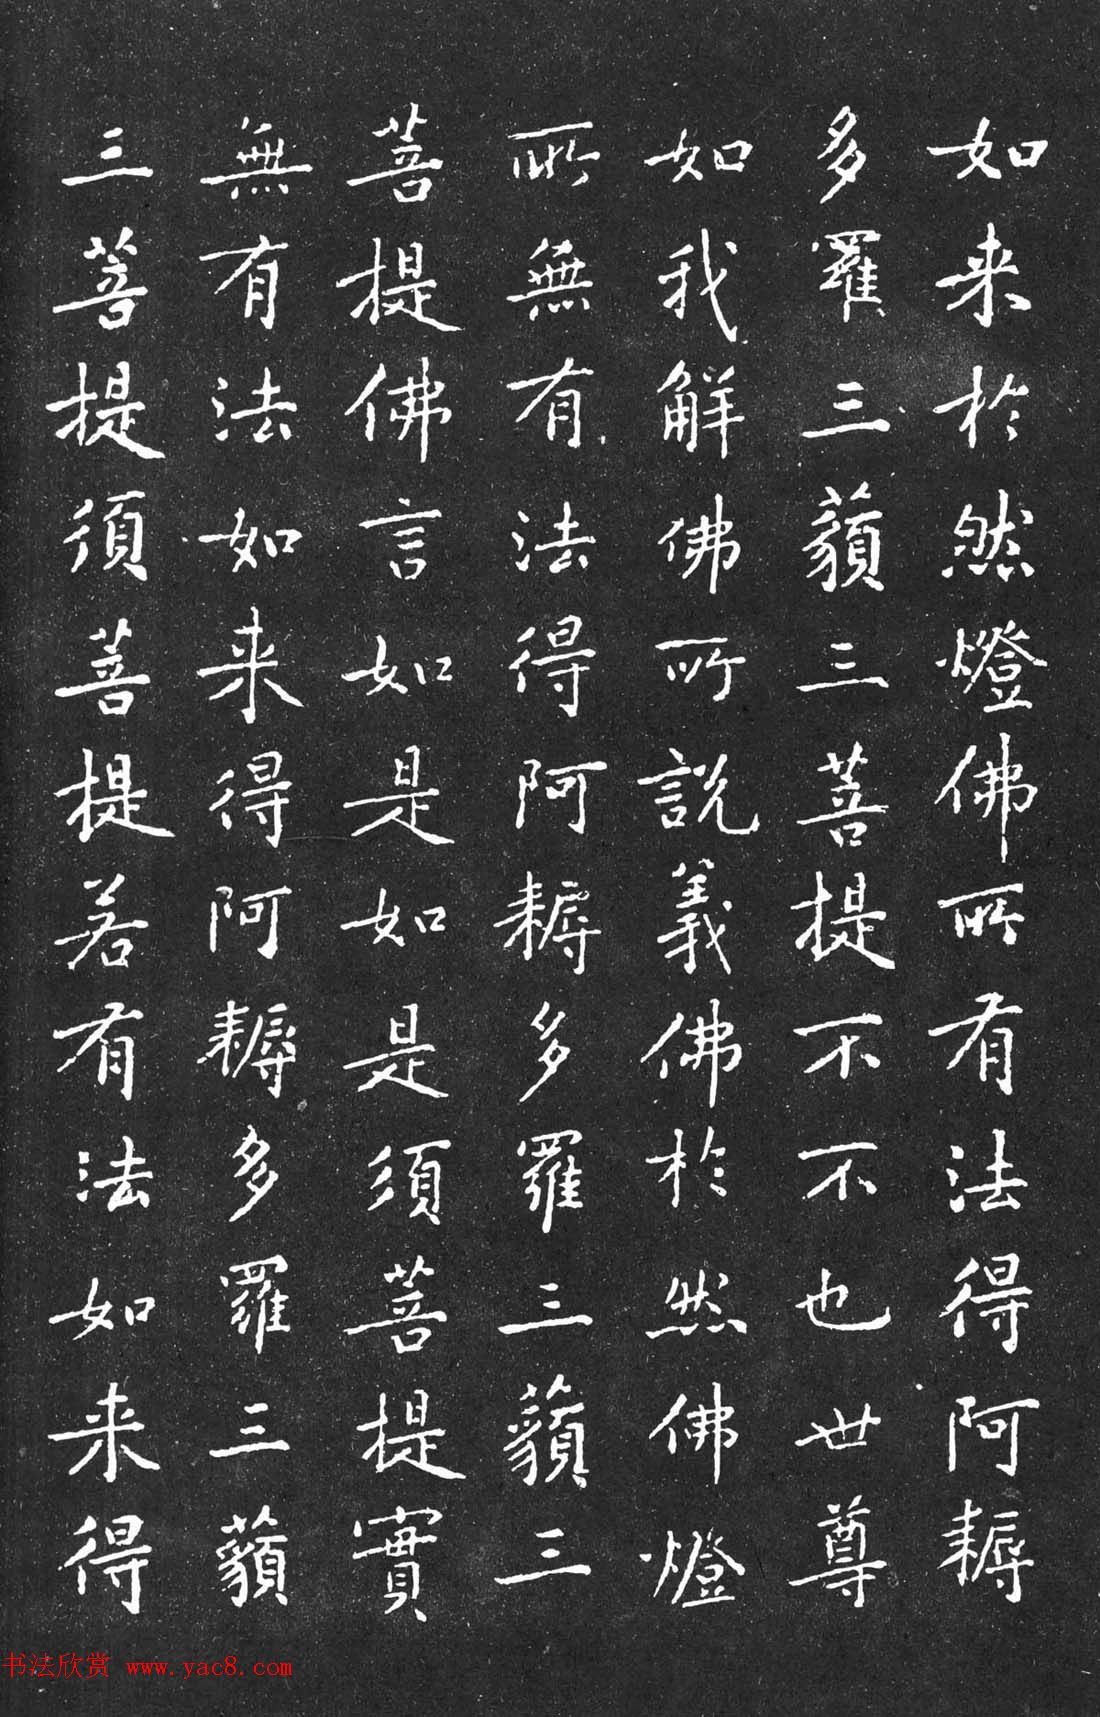 如来於然燈佛所有法得阿耨
多羅三藐三菩提不不也世尊
如我解佛所說義佛於然佛燈
所無有法得阿耨多羅三藐三
菩提佛言如是如是須菩提實
無有法如来得阿耨多羅三藐
三菩提須菩提若有法如来得
书法欣赏 www.yac8.com